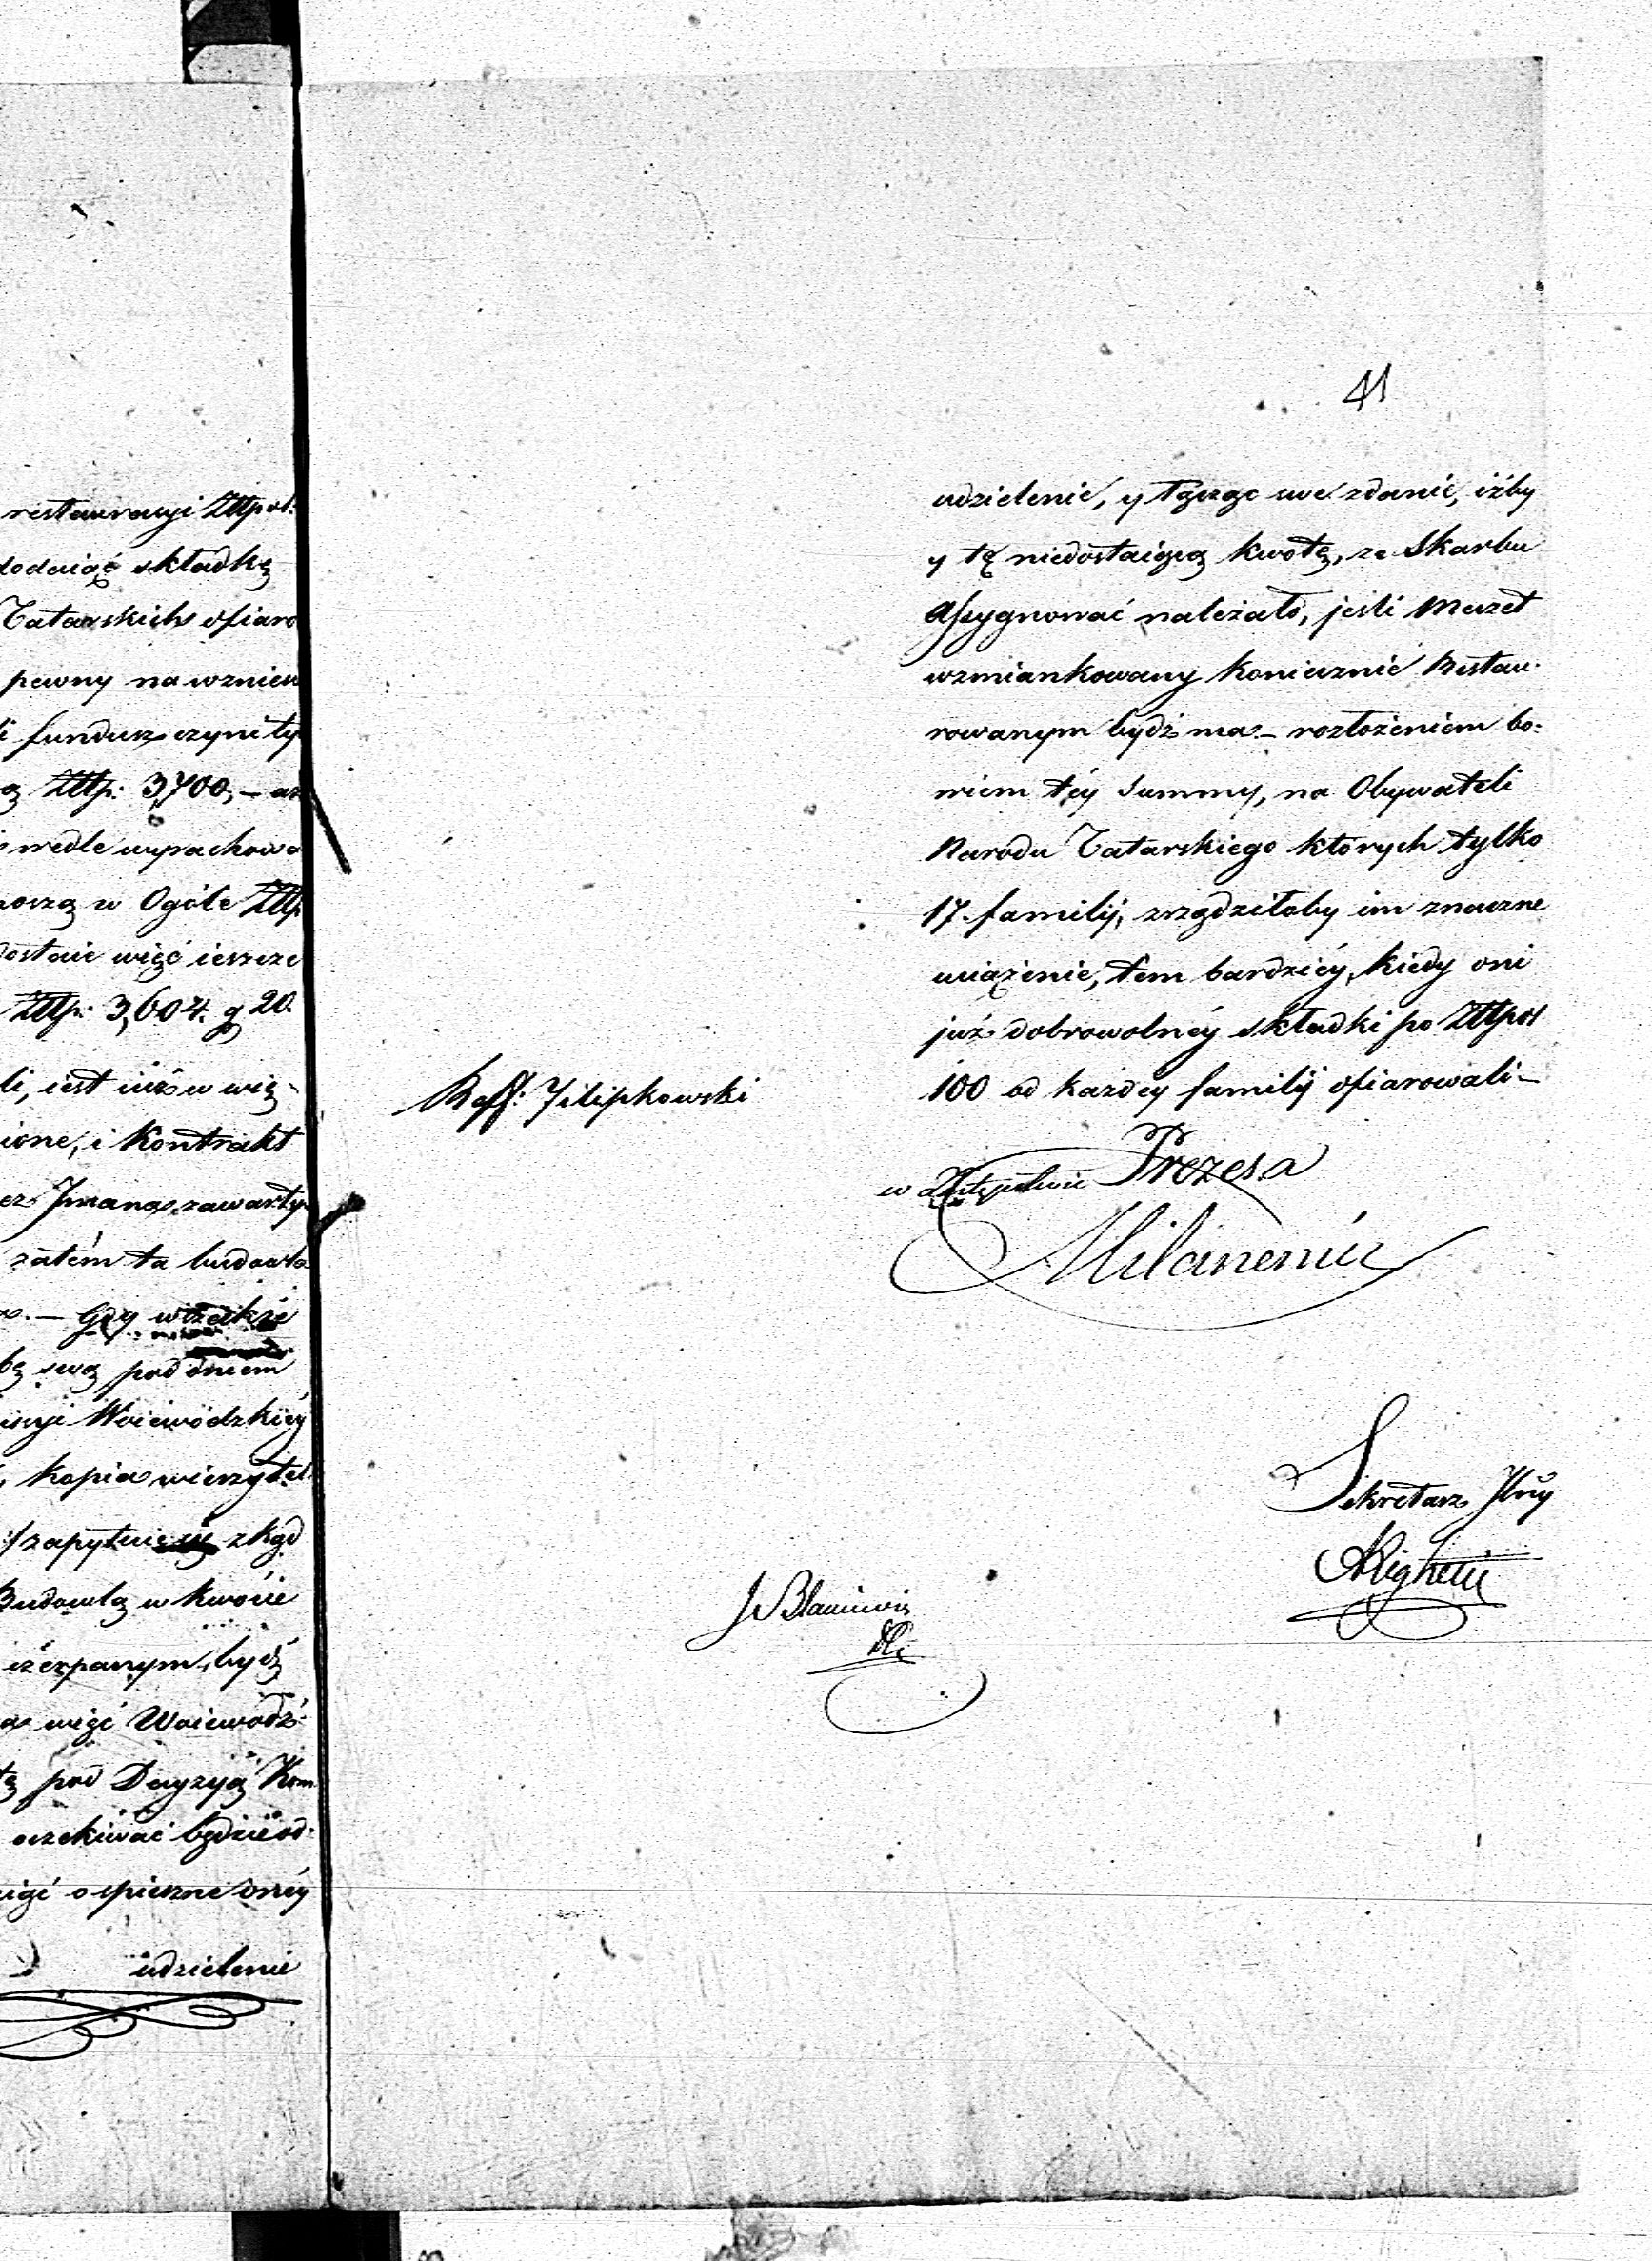 restauracyi Złłpol:
dodaiąć składkę
Tatarskich ofiaro
pewny na wznien
i fundusz czynity
ą Złłp: 3,700, — aż
wedle wyrachowa
noszą w Ogóle Złłp
dostaie więc ieszcze
Złłp: 3,604. g 20.
li, iest iuż w wię-
ione, i Kontrakt
ez Jmana zawarty
zatém ta budowla
— Gdy wszakże
bę swą pod dniem
issyi Woiewódzkiéy
, kopia wierzytel
zapytuie się zkąd
Budowlą w kwocie
czerpanym, bydź
a więc Woiewódz-
tę pod Decyzyą Kom
oczekiwać będzie od-
o spieszne onéy
udzielenie
41
udzielenié, y łącząc swe zdanié, iżby
y tę niedostaiącą kwotę, ze Skarbu
Assygnować należało, jeśli Meczet
wzmiankowany koniecznié Restau-
rowanym bydź ma — rozłożeniém bo-
wiem téy Summy, na Obywateli
Narodu Tatarskiego których tylko
17. familij, zrządziłoby im znaczne
uciążenie, tem bardziéy, kiedy oni
już dobrowolnéy składki po Złłpol
100 od każdey familij ofiarowali —
Reff: Filipkowski
w Zastępstwie Prezesa
Sekretarz Jlny